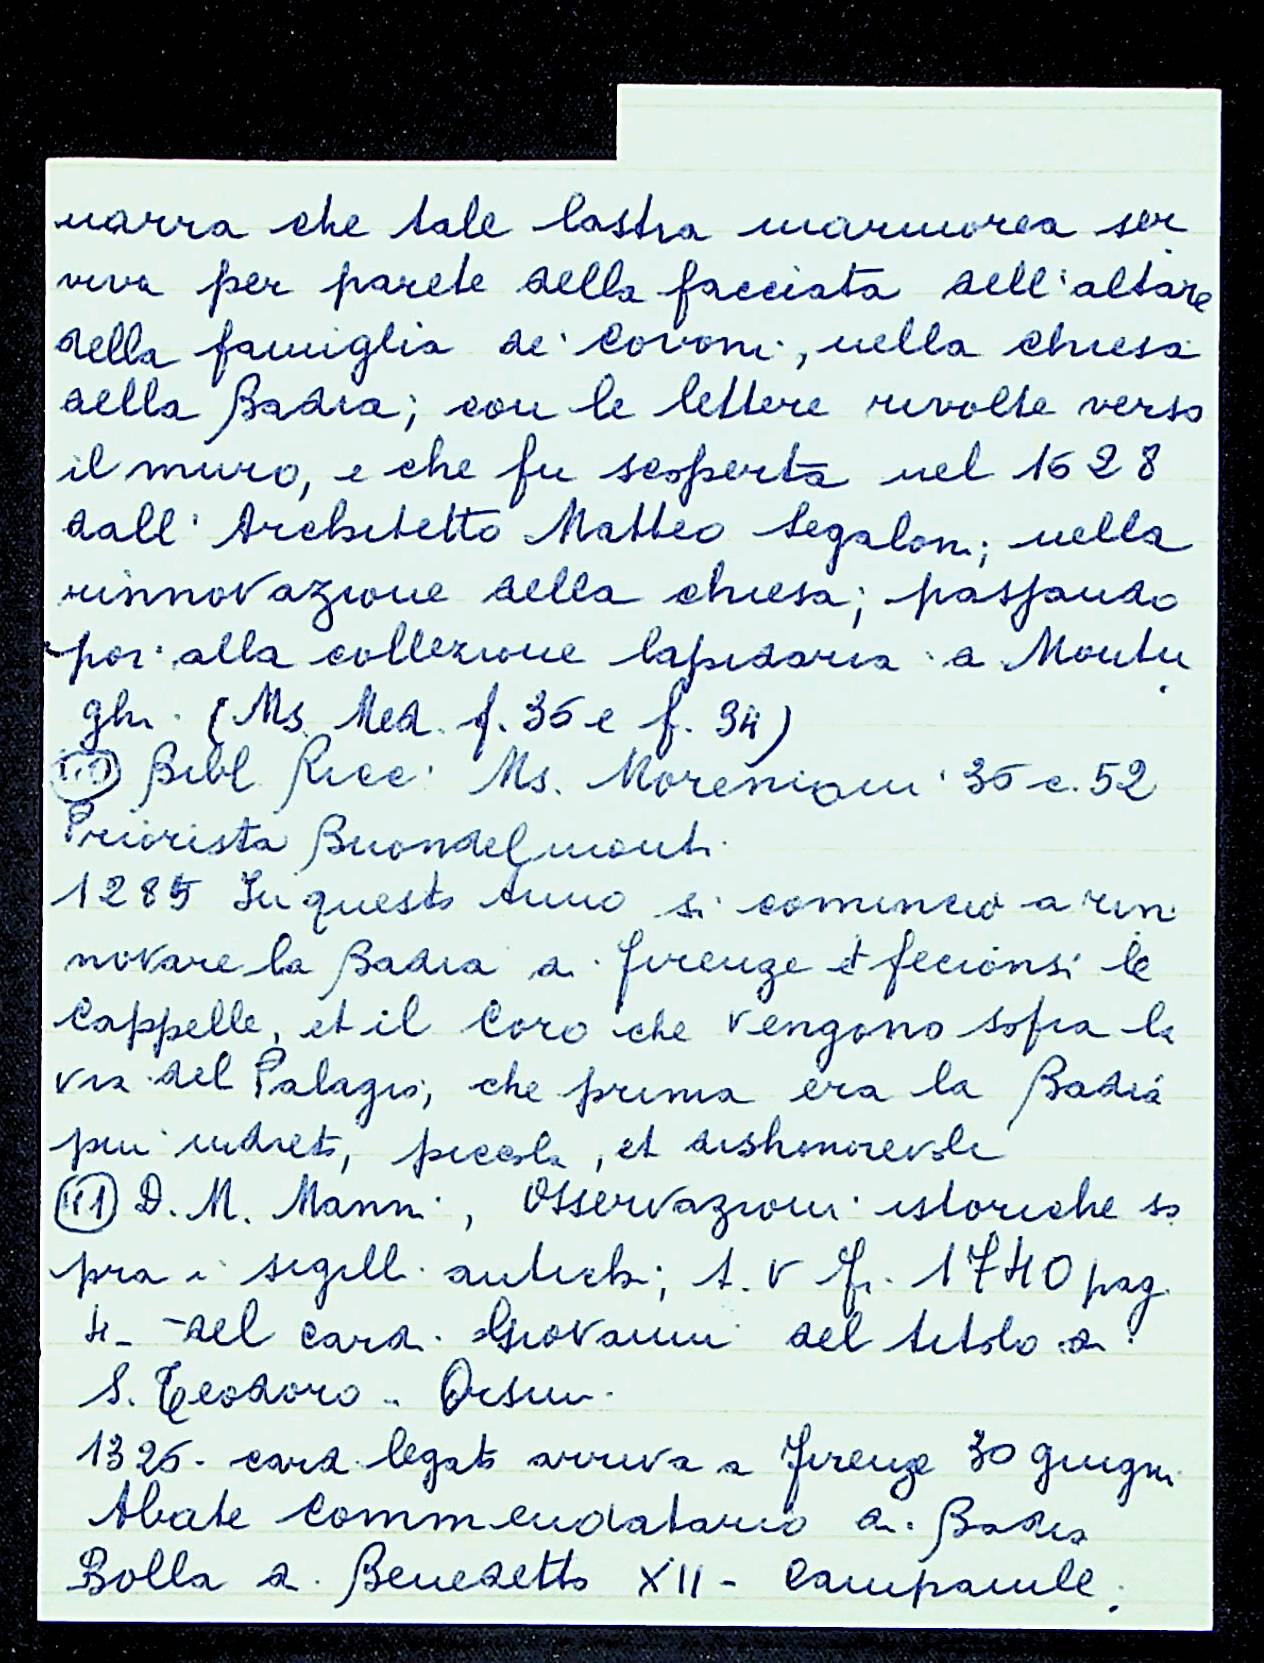 narra che tale lastra marmorea ser
viva per parete della facciata dell'altare
della famiglia de' Covoni, nella chiesa
della Badia; con le lettere rivolte verso
il muro, e che fu scoperta nel 1628
dall'Architetto Matteo Segaloni; nella
rinnovazione della chiesa; passando
poi alla collezione lapidaria a Montu
ghi. (Ms. Med. f. 36 e f. 94)
Bibl Ricc. Ms. Moreniani 36 c. 52
Priorista Buondelmonti.
1285 In questo Anno si cominciò a rin
novare la Badia di Firenze et fecionsi le
Cappelle, et il Coro che vengono sopra la
via del Palagio, che prima era la Badia
piu indreto, piccola, et dishonorevole
(11) D. M. Manni, Osservazioni istoriche so
pra i sigilli antichi; t. V Fi. 1740 pag.
4- del card. Giovanni del titolo di
S. Teodoro - Orsini.
1326 - card. legato arriva a Firenze 30 giugno
Abate Commendatario di Badia
Bolla di Benedetto XII - Campanile.